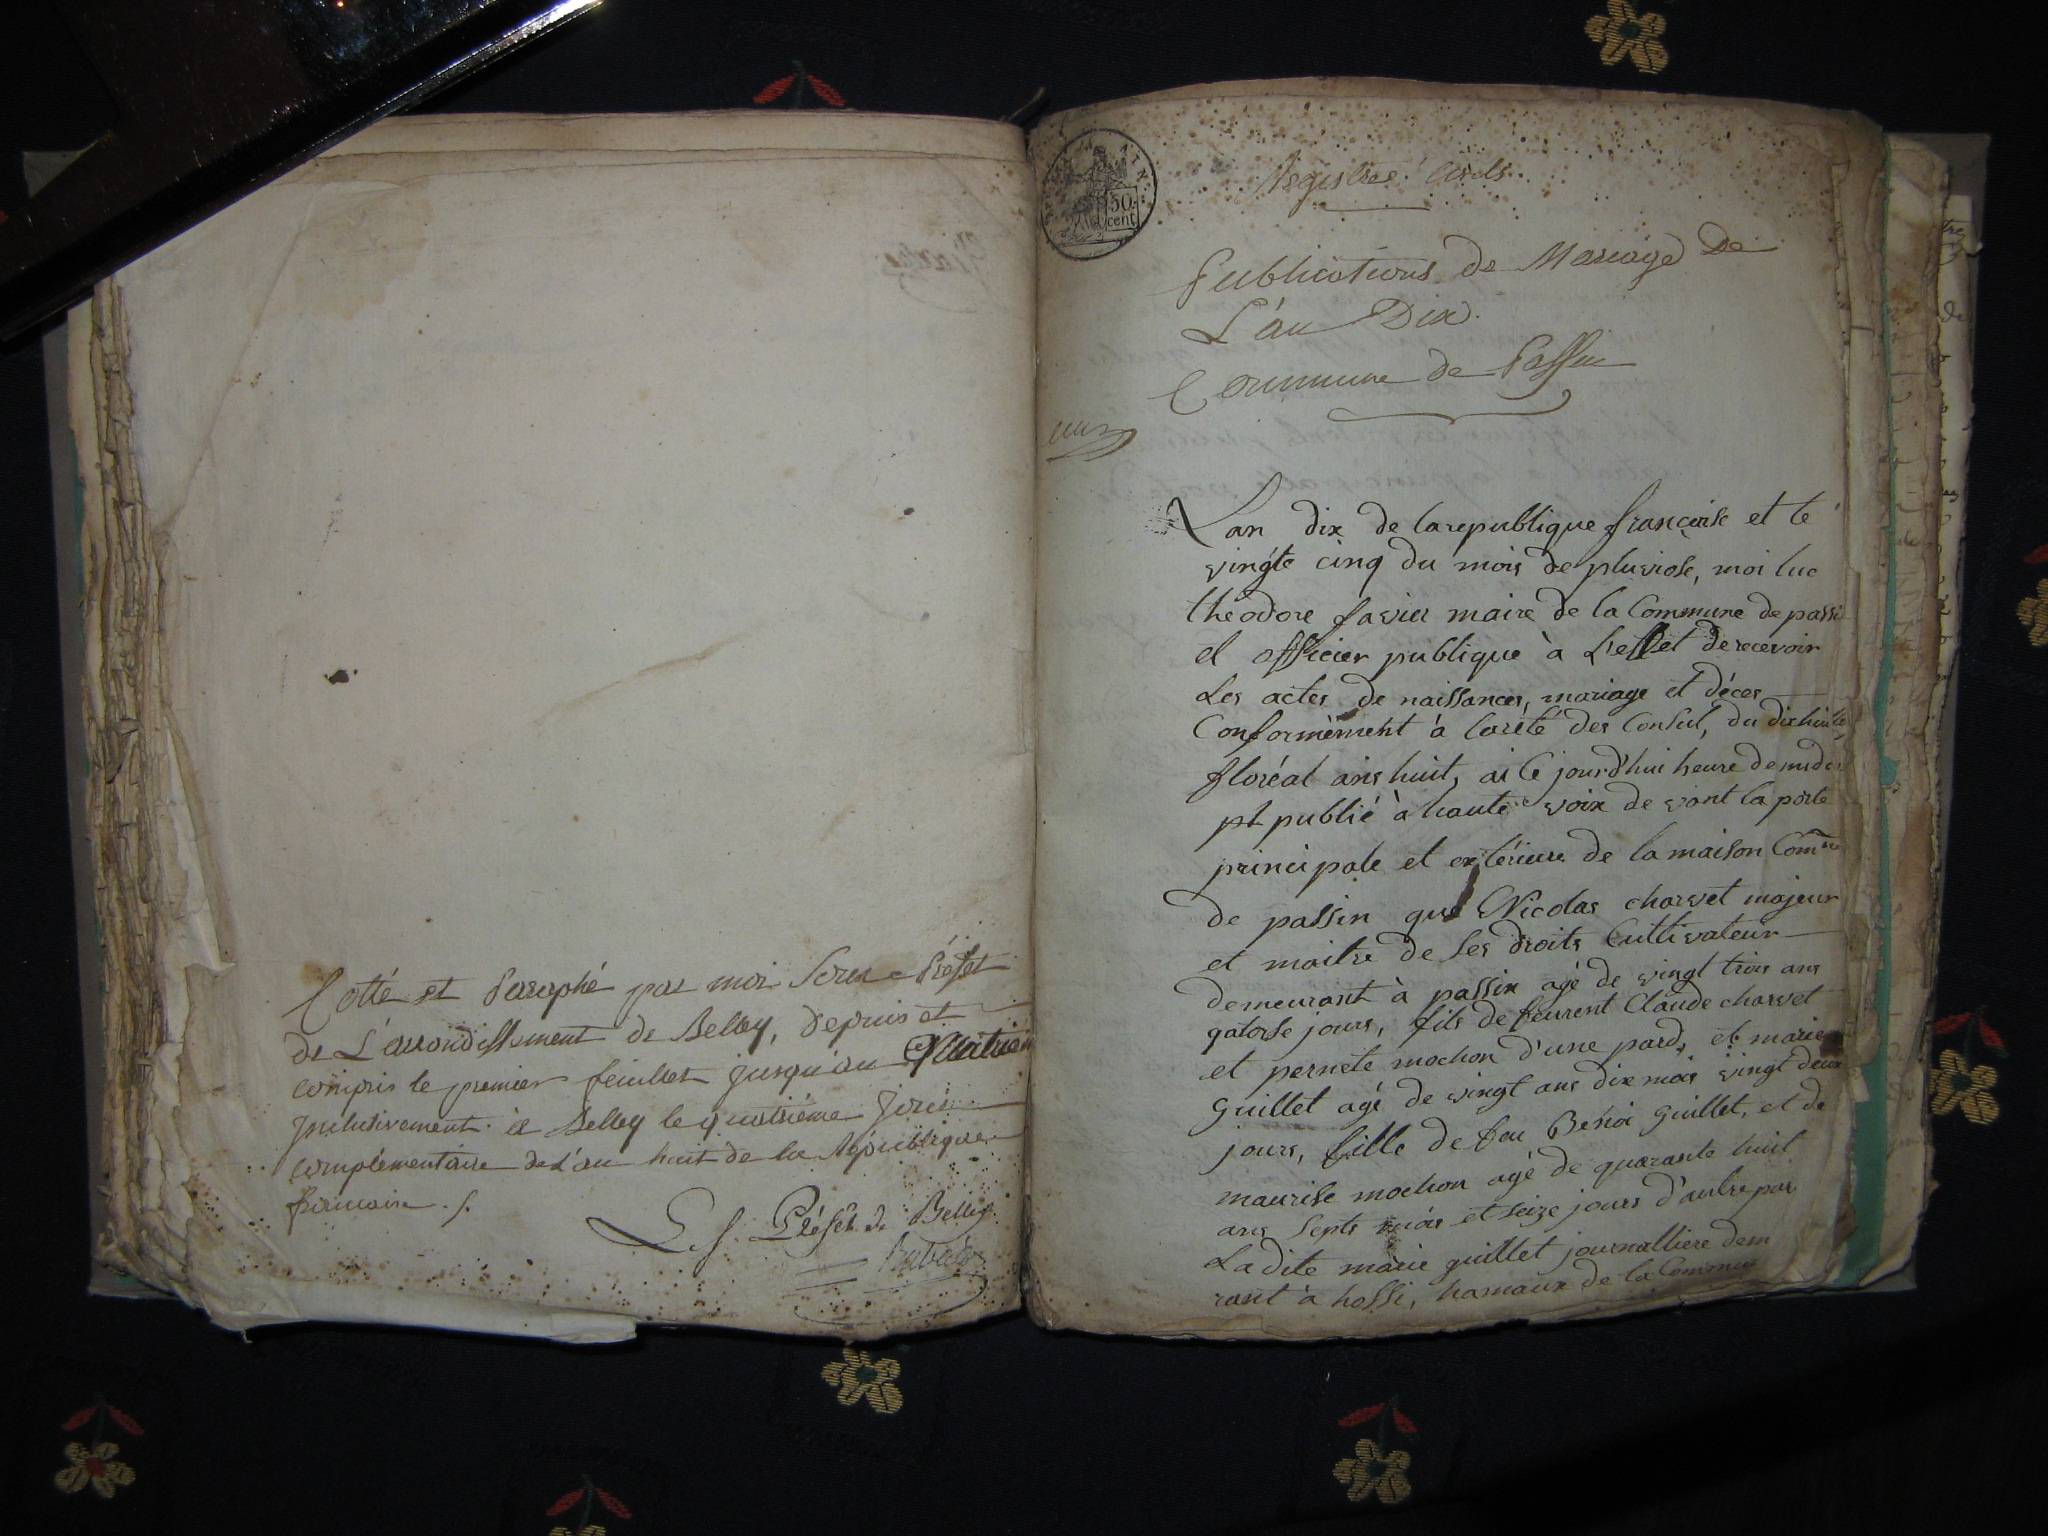 Cotté et Paraphé par moi Sous Préfet
de L'arrondissement de Belley, depuis et
compris le premier feuillet jusqu'au
Inclusivement. à Belley le quatrième Jour
complémentaire de L'an huit de la Republique
francaise ./.
L. s. Préfet de Belley
AIN
50
cent
Registres Civils
Publications de Mariage De
L'an Dix.
Commune de Passin
L'an dix de la republique françaisse et le
vingte cinq du mois de pluviose, moi luc
theodore favier maire de la Commune de passi
et officier publique à L'effet de recevoir
Les actes de naissances, mariage et déces
Conformèment à larété des Consul, du dixhuite
floréal ans huit, ai ce jourd'hui heure de midi
pt publié à haute voix de vant la porte
principale et extérieure de la maison Comne
de passin que Nicolas charvet majeur
et maitre de ses droits Cultivateur
demeurant à passin agé de vingt trois ans
qatorse jours, fils de feurent Claude charvet
et pernete mochon d'une pard, et marie
guillet agé de vingt ans dix mois vingt deux
jours, fille de feu Benoi guillet, et de
maurise mochon agé de quarante huit
ans septs mois et seize jours d'autre par
La dite marie guillet journalliere dem
rant à hossi, hamaux de la Commun